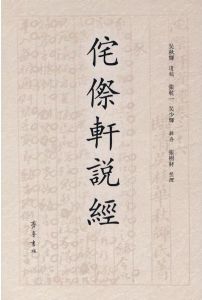 侘傺軒說經
吳秋輝 遺稿 張乾一 吳少輝 輯存 張樹材 整理
齊魯書社